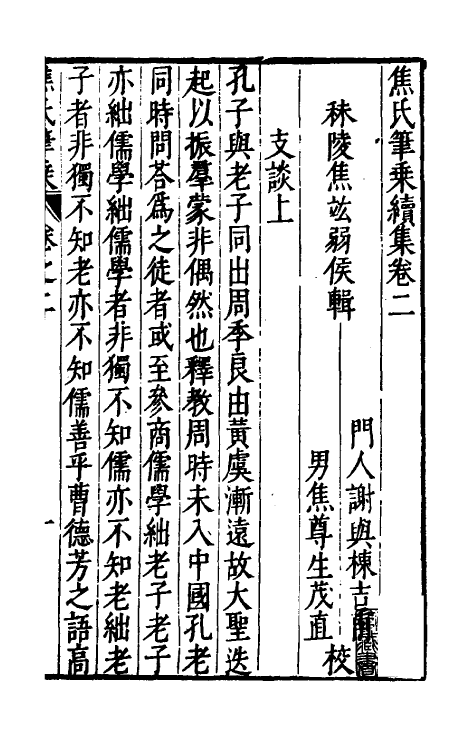 焦氏筆乗續集卷二
秣陵焦竑弱侯輯
門人謝與棟吉甫
男焦尊生茂直
校
支談上
孔子與老子同出周季良由黃虞漸遠故大聖迭
起以振羣蒙非偶然也釋教周時未入中國孔老
同時問荅爲之徒者或至參商儒學絀老子老子
亦絀儒學絀儒學者非獨不知儒亦不知老絀老
子者非獨不知老亦不知儒善乎曹德芳之語高
焦氏筆乗
卷之二
一